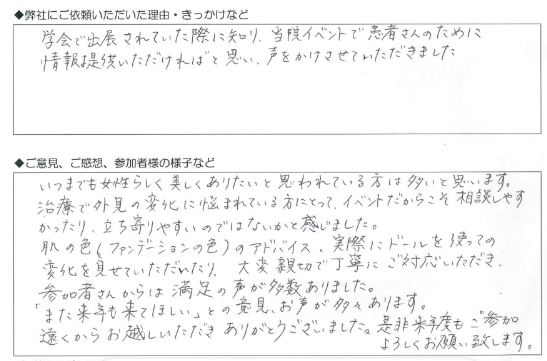 ◆弊社にご依頼いただいた理由・きっかけなど
学会で出展されていた際に知り、当院イベントで患者さんのために
情報提供いただければと思い、声をかけさせていただきました
◆ご意見、ご感想、参加者様の様子など
いつまでも女性らしく美しくありたいと思われている方は多いと思います。
治療で外見の変化に悩まれている方にとって、イベントだからこそ相談しやす
かったり、立ち寄りやすいのではないかと感じました。
肌の色(ファンデーションの色)のアドバイス、実際にドールを使っての
変化を見せていただいたり、大変親切で丁寧にご対応いただき、
参加者さんからは満足の声が多数ありました。
「また来年も来てほしい」との意見、お声が多々あります。
遠くからお越しいただきありがとうございました。是非来年度もご参加
よろしくお願い致します。